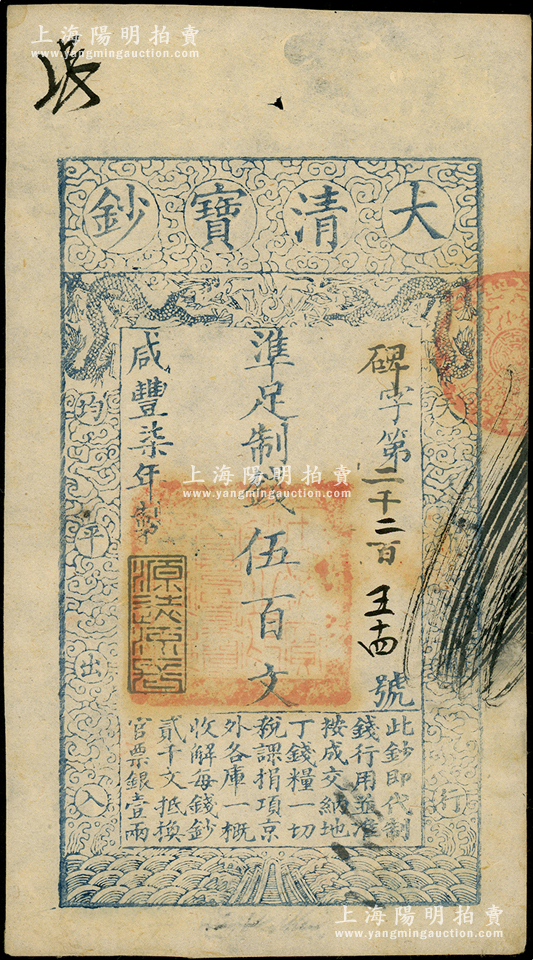 上海陽明拍賣
www.yangmingauction.com
大清寶鈔
碑字第二千二百五十四號
準足制錢伍百文
咸豐柒年製
天
行
均平出入
此鈔即代制
錢行用並准
按成交納地
丁錢糧一切
稅課捐項京
外各庫一概
收解每錢鈔
貳千文抵換
官票銀壹兩
源遠流長
上海陽明拍賣
www.yangmingauction.com
上海陽明拍賣
www.yangmingauction.com